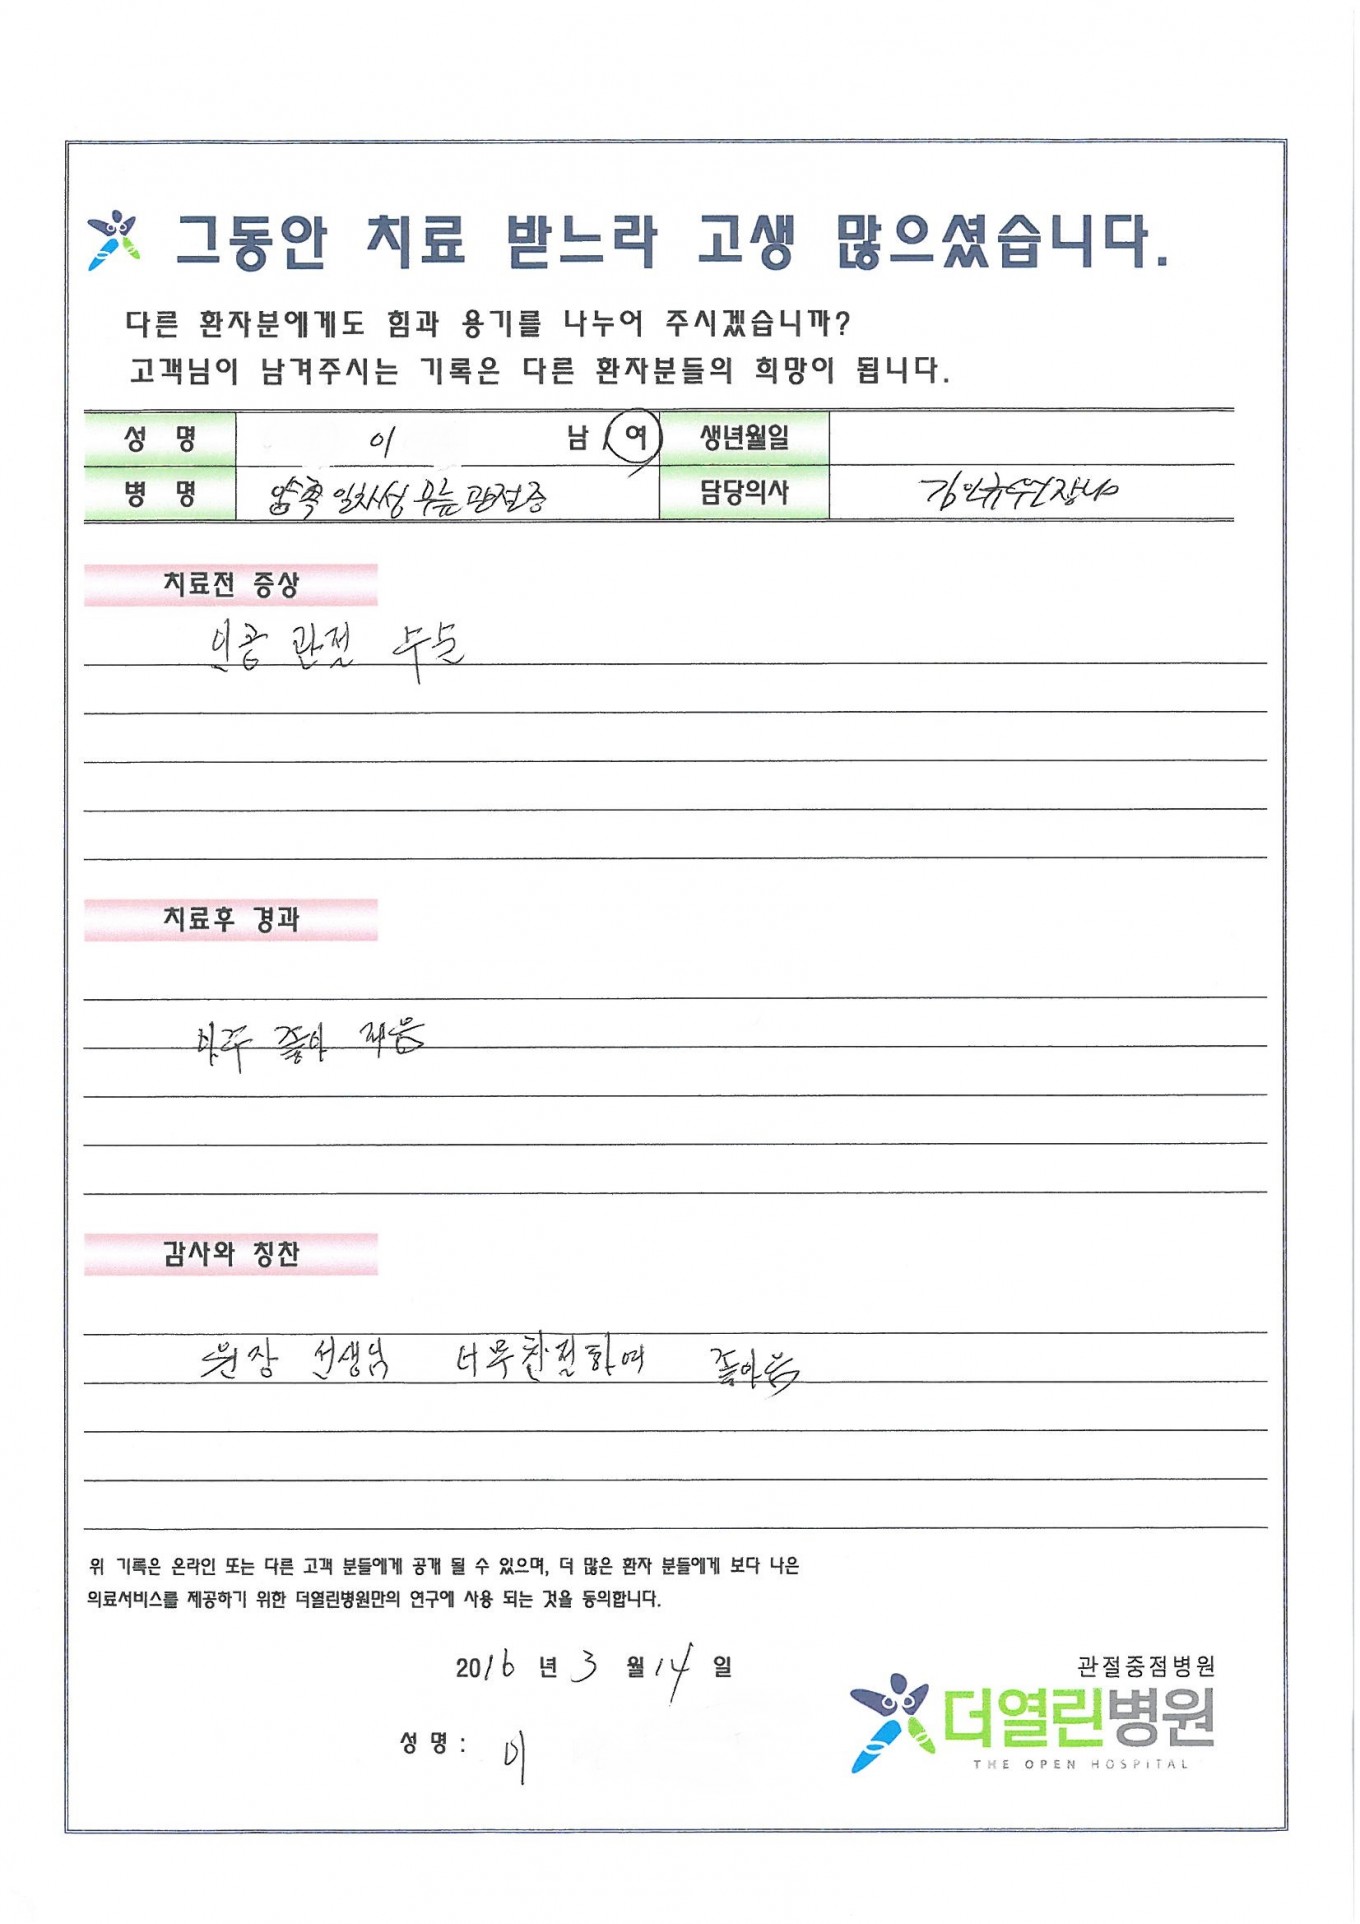 그동안 치료 받느라 고생 많으셨습니다.
다른 환자분에게도 힘과 용기를 나누어 주시겠습니까?
고객님이 남겨주시는 기록은 다른 환자분들의 희망이 됩니다.
성 명 이 남 / 여 생년월일
병 명 양측 일차성 무릎 관절증 담당의사 김인규원장님
치료전 증상
인공 관절 수술
치료후 경과
아주 좋아 졌음
감사와 칭찬
원장 선생님 너무 친절하여 좋아음
위 기록은 온라인 또는 다른 고객 분들에게 공개 될 수 있으며, 더 많은 환자 분들에게 보다 나은
의료서비스를 제공하기 위한 더열린병원만의 연구에 사용 되는 것을 동의합니다.
2016 년 3 월 14 일
성 명 : 이
관절중점병원
더열린병원
THE OPEN HOSPITAL